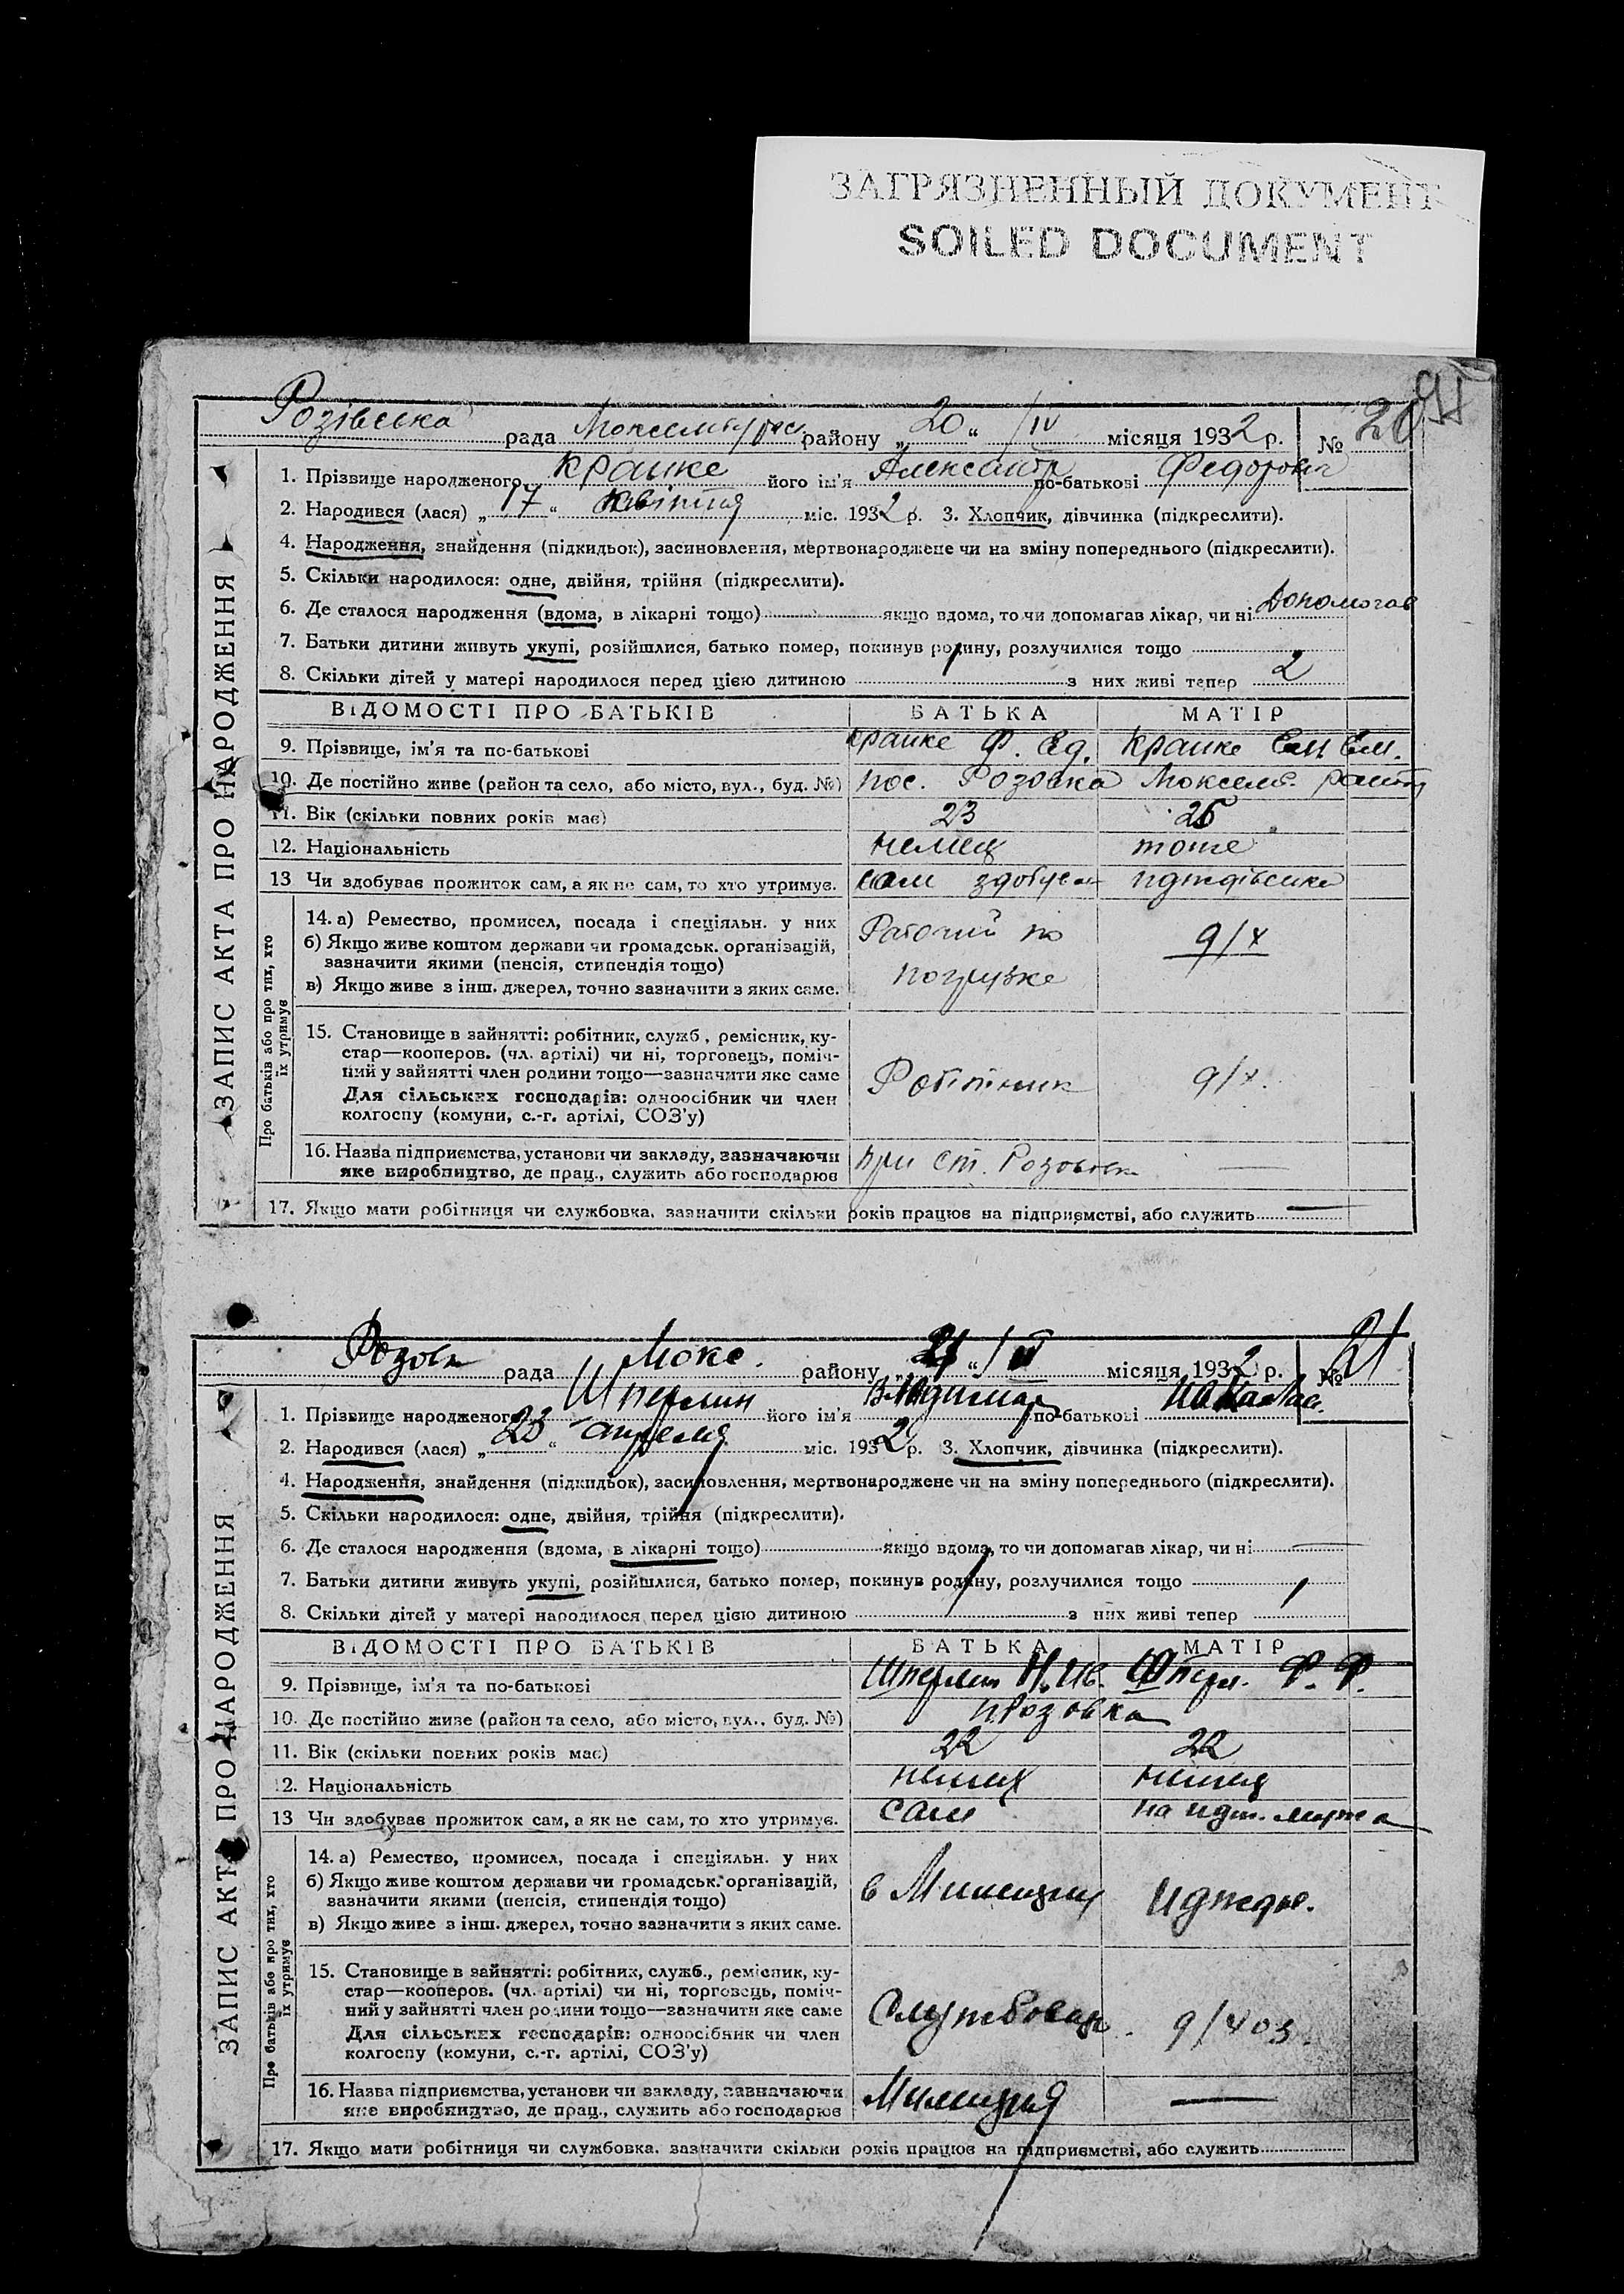 ЗАГРЯЗНЕННЫЙ ДОКУМЕНТ
SOILED DOCUMENT
91
Розівська рада району „20“ /IV місяця 1932 р. № 20
ЗАПИС АКТА ПРО НАРОДЖЕННЯ
1. Прізвище народженого Кранке його ім'я Александр по-батькові Федорович
2. Народився (лася) „17“ квітня міс. 1932 р. 3. Хлопчик, дівчинка (підкреслити).
4. Народження, знайдення (підкидьок), засиновлення, мертвонароджене чи на зміну попереднього (підкреслити).
5. Скільки народилося: одне, двійня, трійня (підкреслити).
6. Де сталося народження (вдома, в лікарні тощо) якщо вдома, то чи допомагав лікар, чи ні Допомогав
7. Батьки дитини живуть укупі, розійшлися, батько помер, покинув родину, розлучилися тощо
8. Скільки дітей у матері народилося перед цією дитиною з них живі тепер 2
ВІДОМОСТІ ПРО БАТЬКІВ БАТЬКА МАТІР
9. Прізвище, ім'я та по-батькові Кранке Ф. Ед. Кранке Ем. Ем.
10. Де постійно живе (район та село, або місто, вул., буд. №) пос. Розовка
11. Вік (скільки повних років має) 23 25
12. Національність немец тоже
13 Чи здобував прожиток сам, а як не сам, то хто утримує. сам
Про батьків або про тих, хто
їх утримує
14. а) Ремество, промисел, посада і спеціяльн. у них
б) Якщо живе коштом держави чи громадськ. організацій,
зазначити якими (пенсія, стипендія тощо)
в) Якщо живе з інш. джерел, точно зазначити з яких саме.
Рабочий по
погрузке
д/х
15. Становище в зайнятті: робітник, служб., ремісник, ку-
стар—кооперов. (чл. артілі) чи ні, торговець, поміч-
ний у зайнятті член родини тощо—зазначити яке саме
Для сільських господарів: одноосібник чи член
колгоспу (комуни, с.-г. артілі, СОЗ'у)
Робітник д/х.
16. Назва підприємства, установи чи закладу, зазначаючи
яке виробництво, де прац., служить або господарює
при ст. Розовка —
17. Якщо мати робітниця чи службовка, зазначити скільки років працює на підприємстві, або служить —
Розов рада Мокс. району „21“ /IV місяця 1932 р. № 21
ЗАПИС АКТА ПРО НАРОДЖЕННЯ
1. Прізвище народженого Шперлин його ім'я Владимир по-батькові
2. Народився (лася) „23“ апреля міс. 1932 р. 3. Хлопчик, дівчинка (підкреслити).
4. Народження, знайдення (підкидьок), засиновлення, мертвонароджене чи на зміну попереднього (підкреслити).
5. Скільки народилося: одне, двійня, трійня (підкреслити).
6. Де сталося народження (вдома, в лікарні тощо) якщо вдома, то чи допомагав лікар, чи ні —
7. Батьки дитини живуть укупі, розійшлися, батько помер, покинув родину, розлучилися тощо
8. Скільки дітей у матері народилося перед цією дитиною з них живі тепер
ВІДОМОСТІ ПРО БАТЬКІВ БАТЬКА МАТІР
9. Прізвище, ім'я та по-батькові Шперлин Н. Ив. Шперл. Ф. Ф.
10. Де постійно живе (район та село, або місто, вул., буд. №) п Розовка
11. Вік (скільки повних років має) 22 22
12. Національність
13 Чи здобував прожиток сам, а як не сам, то хто утримує. сам на ижд. мужа
Про батьків або про тих, хто
їх утримує
14. а) Ремество, промисел, посада і спеціяльн. у них
б) Якщо живе коштом держави чи громадськ. організацій,
зазначити якими (пенсія, стипендія тощо)
в) Якщо живе з інш. джерел, точно зазначити з яких саме.
в Милиции Иждев.
15. Становище в зайнятті: робітник, служб., ремісник, ку-
стар—кооперов. (чл. артілі) чи ні, торговець, поміч-
ний у зайнятті член родини тощо—зазначити яке саме
Для сільських господарів: одноосібник чи член
колгоспу (комуни, с.-г. артілі, СОЗ'у)
д/хоз.
16. Назва підприємства, установи чи закладу, зазначаючи
яке виробництво, де прац., служить або господарює
Милиция —
17. Якщо мати робітниця чи службовка, зазначити скільки років працює на підприємстві, або служить